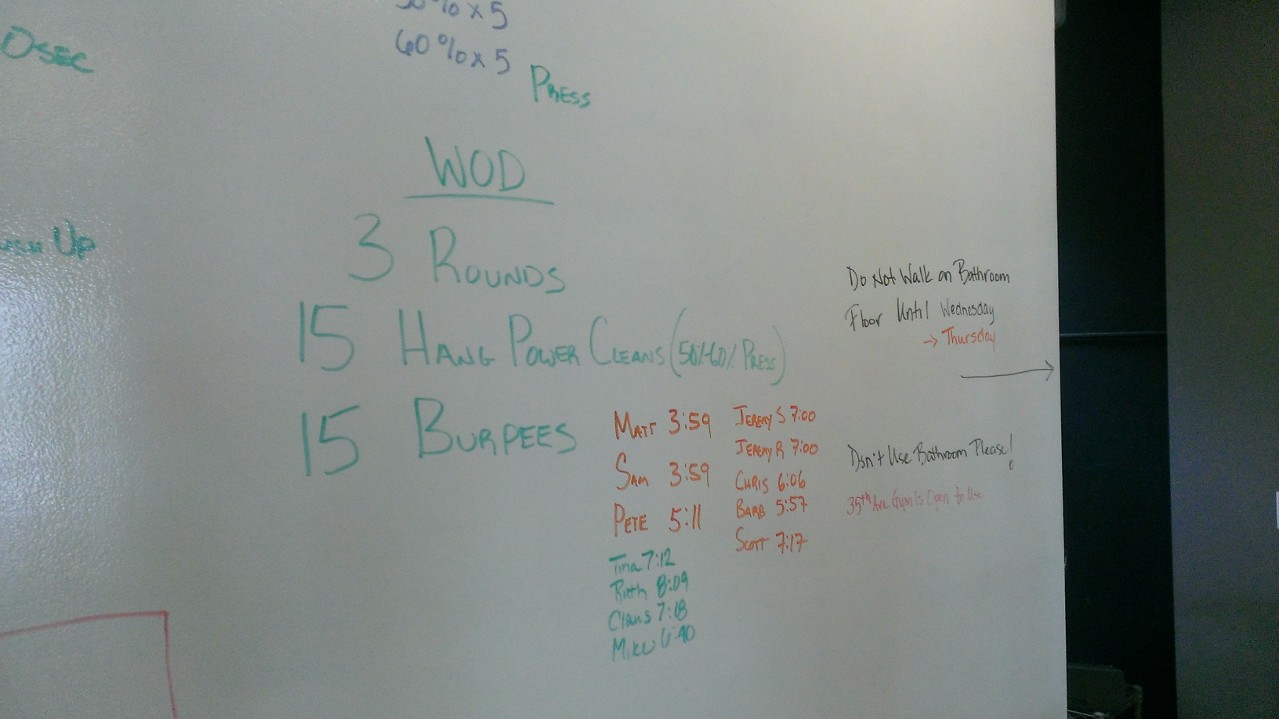 0sec
50%x5
60%x5
Press
WOD
3 Rounds
15 Hang Power Cleans (50%-60% Press)
15 Burpees
Up
Matt 3:59
Sam 3:59
Pete 5:11
Tina 7:12
Ruth 8:09
Claus 7:18
Mike 6:40
Jeremy S 7:00
Jeremy R 7:00
Chris 6:06
Barb 5:57
Scott 7:17
Do Not Walk on Bathroom
Floor Until Wednesday
→ Thursday
Don't Use Bathroom Please!
35th Ave Gym Is Open to Use